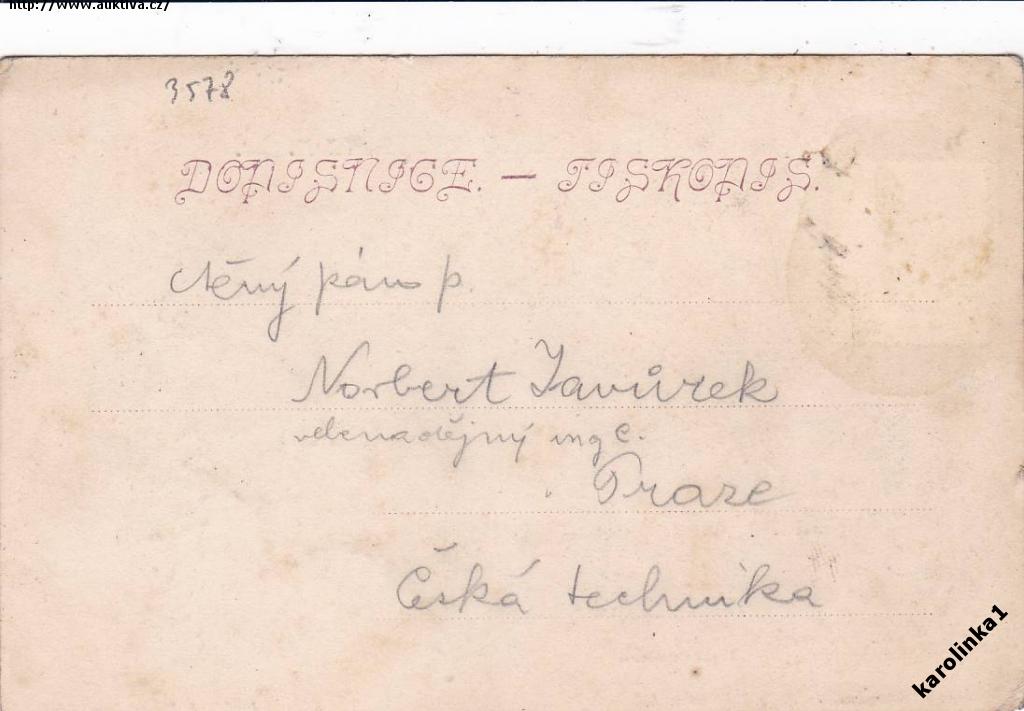 http://www.auktiva.cz/
3578
DOPISNICE. — TISKOPIS.
ctěný pán p.
Norbert Javůrek
velenadějný ing C.
Praze
Česká technika
karolinka1